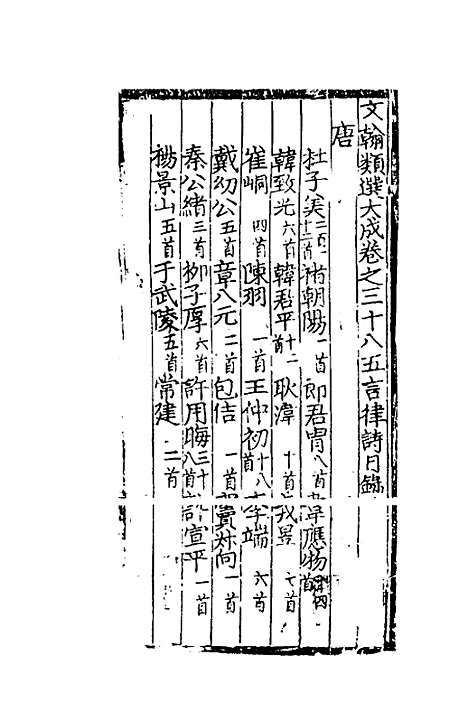 文翰類選大成卷之三十八五言律詩目錄
唐
杜子美二百十一首 褚朝陽一首 郎君冑八首 韋應物
韓致光六首 韓君平十二首 耿湋十首 七首
崔峒四首 陳羽一首 王仲初十八首 李端六首
戴幼公五首 章八元二首 包佶一首 竇叔向一首
秦公緒三首 柳子厚六首 許用晦三十八首 許宣平一首
景山五首 于武陵五首 常建二首